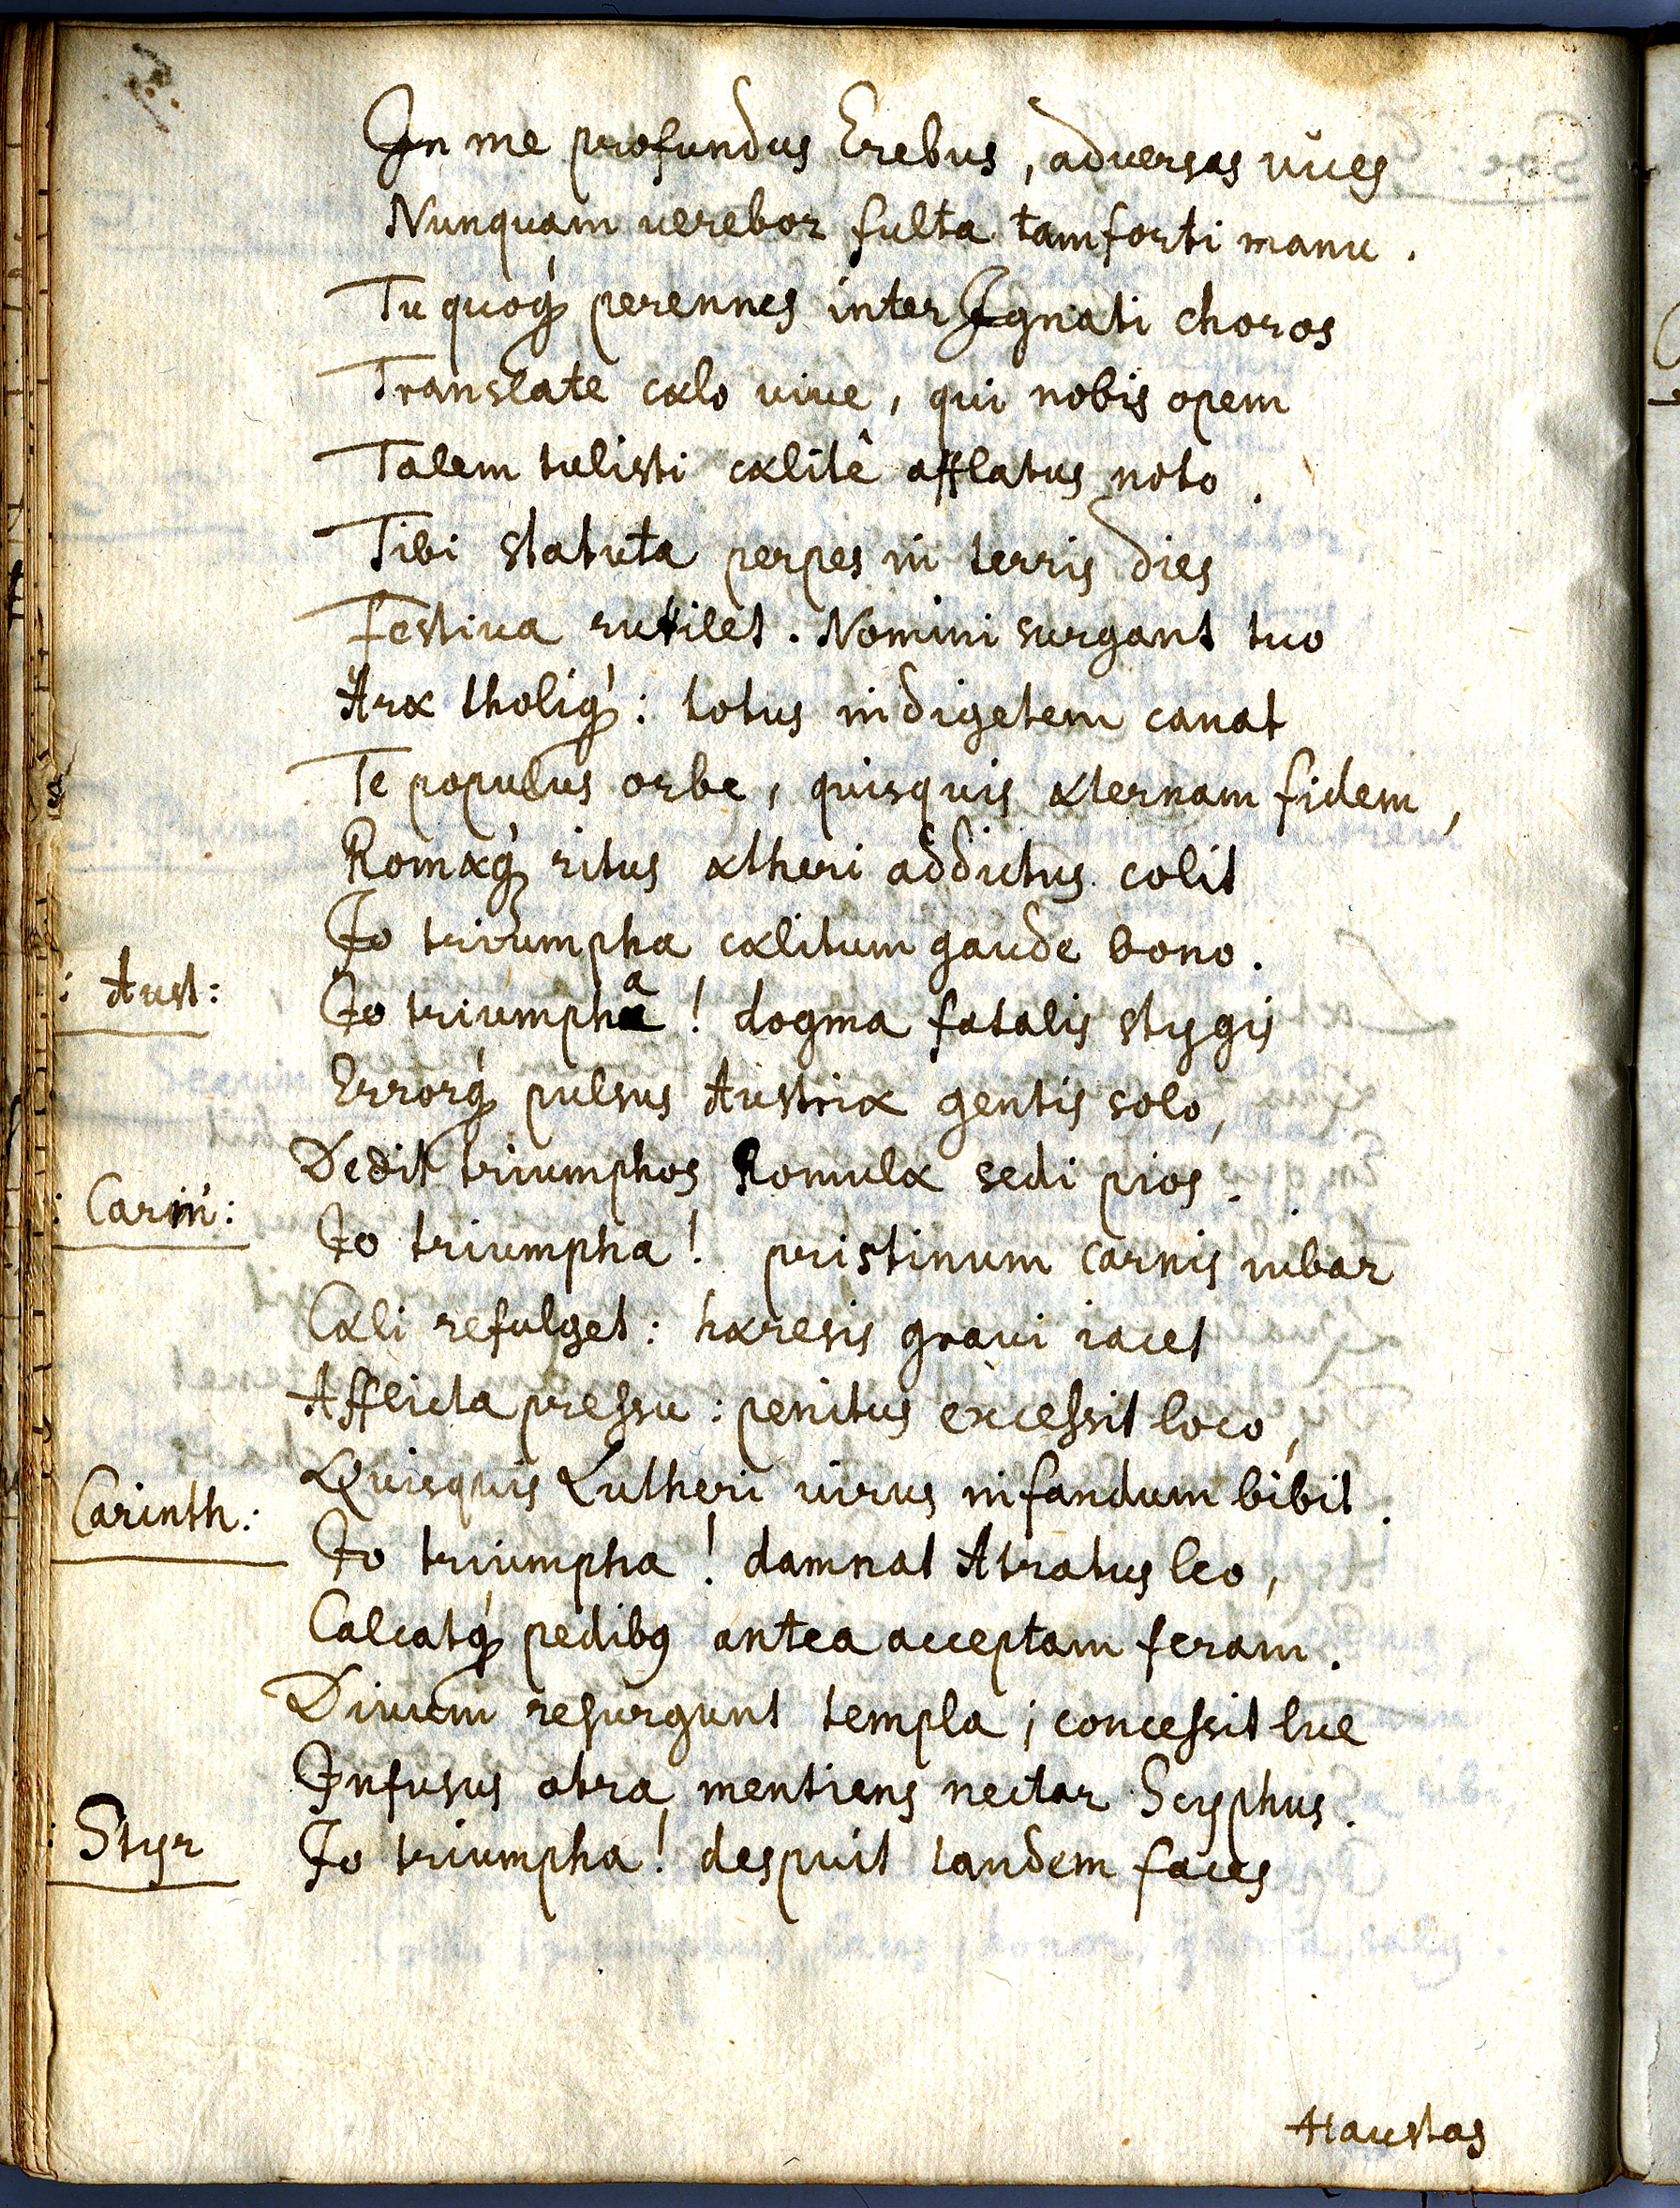 In me profundus Erebus, adversas vices
Nunquam verebor fulta tam forti manu.
Tu quoq́ perennes inter Ignati choros
Translate cælo vive, qui nobis opem
Talem tulisti cælitê afflatus noto.
Tibi statuta perpes in terris dies
Festiva rutilet. Nomini surgant tuo
Aræ tholiq́: totus indigetem canat
Te populus orbe, quisquis æternam fidem,
Romæq́ ritus ætheri addictus colit
Io triumpha cælitum gaude bono.
: Aust:
Io triumpha! dogma fatalis stygis
Errorq́ pulsus Austriæ gentis solo,
Dedit triumphos Romulæ sedi pios.
: Carni:
Io triumpha! pristinum carnis iubar
Cæli refulget: hæresis gravi iacet
Afflicta pressu: penitus excessit loco,
Quisquis Lutheri virus infandum bibit.
Carinth:
Io triumpha! damnat Atratus leo,
Calcatq́ pedibꝰ antea acceptam feram.
Divum resurgunt templa; concessit lue
Infusus atra mentiens nectar Scyphus.
: Styr
Io triumpha! despuit tandem faces
Haustas